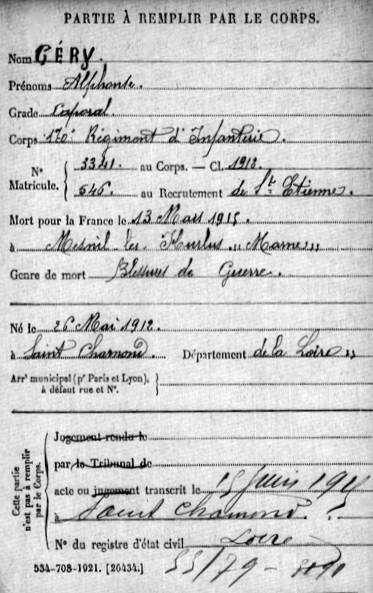 PARTIE À REMPLIR PAR LE CORPS.
Nom GÉRY
Prénoms Alphonse.
Grade Caporal.
Corps 170e Régiment d'Infanterie.
N° Matricule. { 3341. au Corps. — Cl. 1912.
546. au Recrutement de St Etienne.
Mort pour la France le 13 Mars 1915
à Mesnil les Hurlus "Marne"
Genre de mort Blessures de Guerre.
Né le 26 Mai 1912.
à Saint Chamond. Département de la Loire "
Arrt municipal (pr Paris et Lyon), à défaut rue et N°. {
Cette partie n'est pas à remplir par le Corps.
Jugement rendu le
par le Tribunal de
acte ou jugement transcrit le 15 Juin 1915
à Saint Chamond.
N° du registre d'état civil Loire
534-708-1921. [26434.] 55/79 -